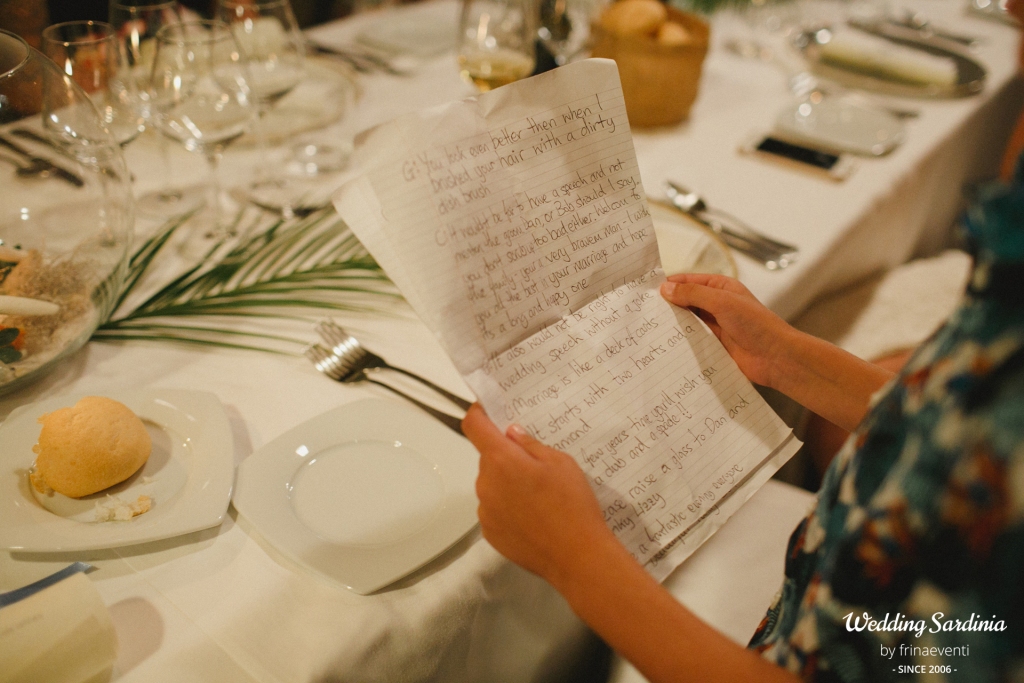 G: You look even better then when I
brushed your hair with a dirty
dish brush
C: It would not be fair to have a speech and not
mention the groom, Dan, or Bob should I say,
you don't scrub up too bad either, welcome to
the family, you're a very brave man. I wish
you all the best in your marriage and hope
it's a long and happy one
It also would not be right to have a
wedding speech without a joke
G: Marriage is like a deck of cards
It starts with two hearts and a
diamond
few years time you'll wish you
a club and a spade!!
raise a glass to Dan and
Lizzy
a fantastic evening everyone
Wedding Sardinia
by frinaeventi
- SINCE 2006 -